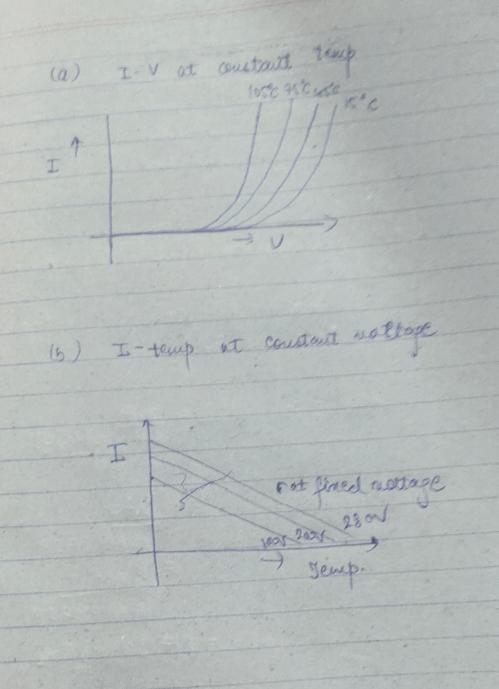 (a) I-V at constant temp
105°C 75°C 45°C 15°C
I
V
(b) I-temp at constant voltage
I
at fixed voltage
280V
Temp.